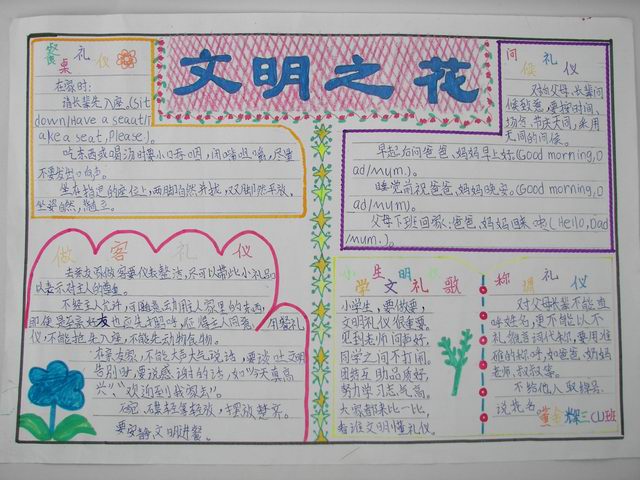 文明之花
餐桌礼仪
在家时:
请长辈先入座。(Sit
down/Have a seat/T
ake a seat, Please)。
吃东西或喝汤时要小口吞咽,闭嘴咀嚼,尽量
不要发出响声。
坐在
座位上,两脚自然并拢,双脚自然平放,
坐姿自然,
问候礼仪
对祖父母、长辈问
候致意,要按时间、
场合、节庆不同,采用
不同的问候。
早起后问爸爸、妈妈早上好。(Good morning,D
ad/Mum.)。
睡觉前祝爸爸、妈妈晚安。(Good morning,D
ad/Mum)。
父母下班回家:爸爸、妈妈回来啦(Hello,Dad
/Mum.)。
做客礼仪
去亲友家做客要仪表整洁,尽可以带些小礼品,
以表示对主人的尊重。
不经主人允许,
别人家里的东西,
即使是至亲好友也应先打招呼,征得主人同意,用餐礼
仪,不能抢先入座,不能先动食物。
在亲友家,不能大声大气说话,要谈吐文明
告别时,要说感谢的话,如“今天真高
兴”、“欢迎到我家去”。
碗、碟轻拿轻放,摆放整齐。
要安静、文明进餐。
小学生文明礼仪歌
小学生,要做要,
文明礼仪很重要,
见到老师问声好,
同学之间不打闹。
团结互助品质好,
努力学习志气高。
大家都来比一比,
看谁文明懂礼仪。
称谓礼仪
对父母长辈不能直
呼姓名,更不能以不
礼貌言词代称,要用准
确的称呼,如爸爸、奶奶、
老师、叔叔等。
不给他人取绰号、
说花名。
三(2)班